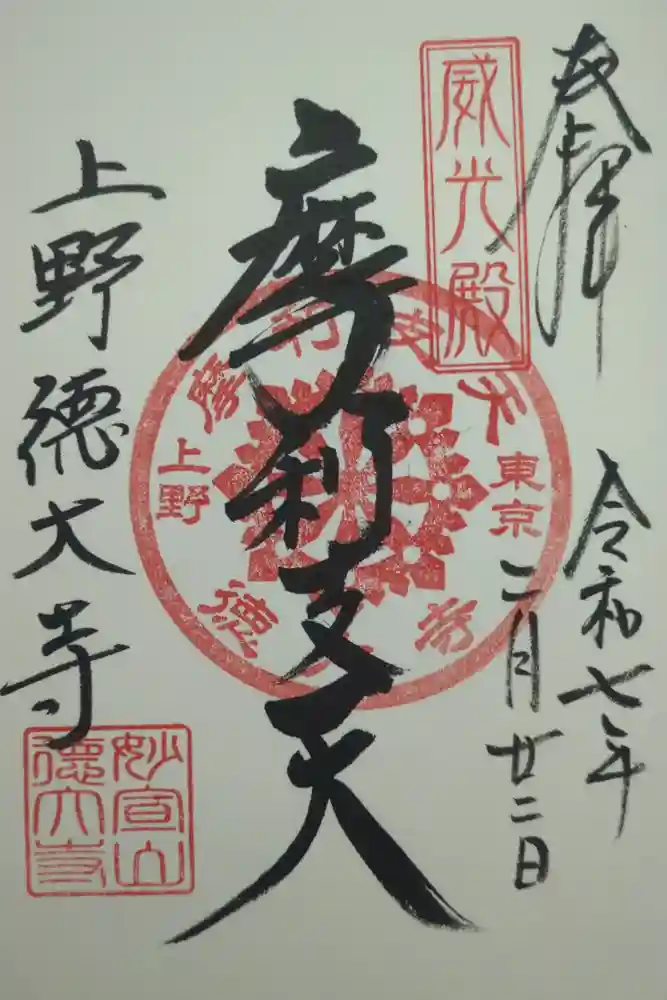 奉拝
令和七年
二月廿二日
威光殿
摩利支天
摩利支天
東京
上野
徳大寺
上野徳大寺
妙宣山
徳大寺